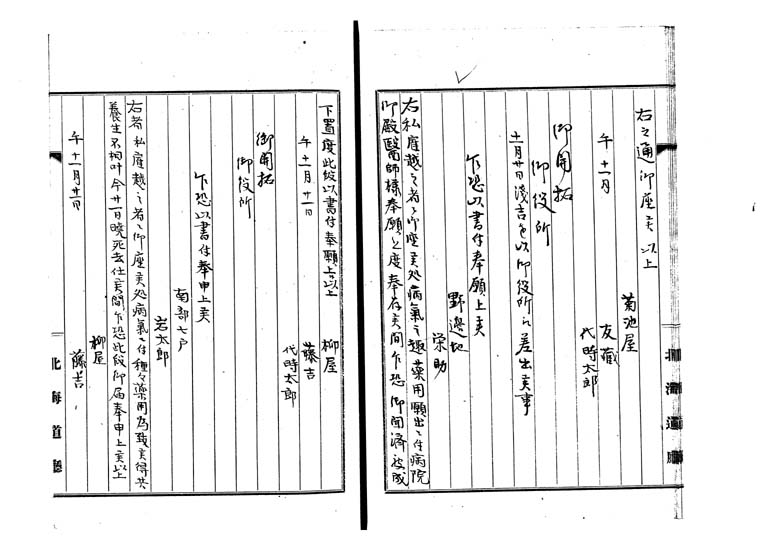 右之通御座候以上
菊池屋
午十一月
友蔵
代時太郎
御開拓
御役所
十一月廿日淺吉を以御役所江差出候事
乍恐以書付奉願上候
野邉地
栄助
右私雇越之者ニ御座候処病氣之趣薬用願出ニ付病院
御殿醫師様奉願上度奉存候間乍恐御聞済被成
下置度此段以書付奉願上候以上
柳屋
午十一月廿一日
藤吉
代時太郎
御開拓
御役所
乍恐以書付奉申上候
南部七戸
岩太郎
右者私雇越之者ニ御座候処病氣ニ付種々薬用為致候得共
養生不相叶今廿一日暁死去仕候間乍恐此段御届奉申上候以上
柳屋
午十一月廿一日
藤吉
北海道廳
北海道廳